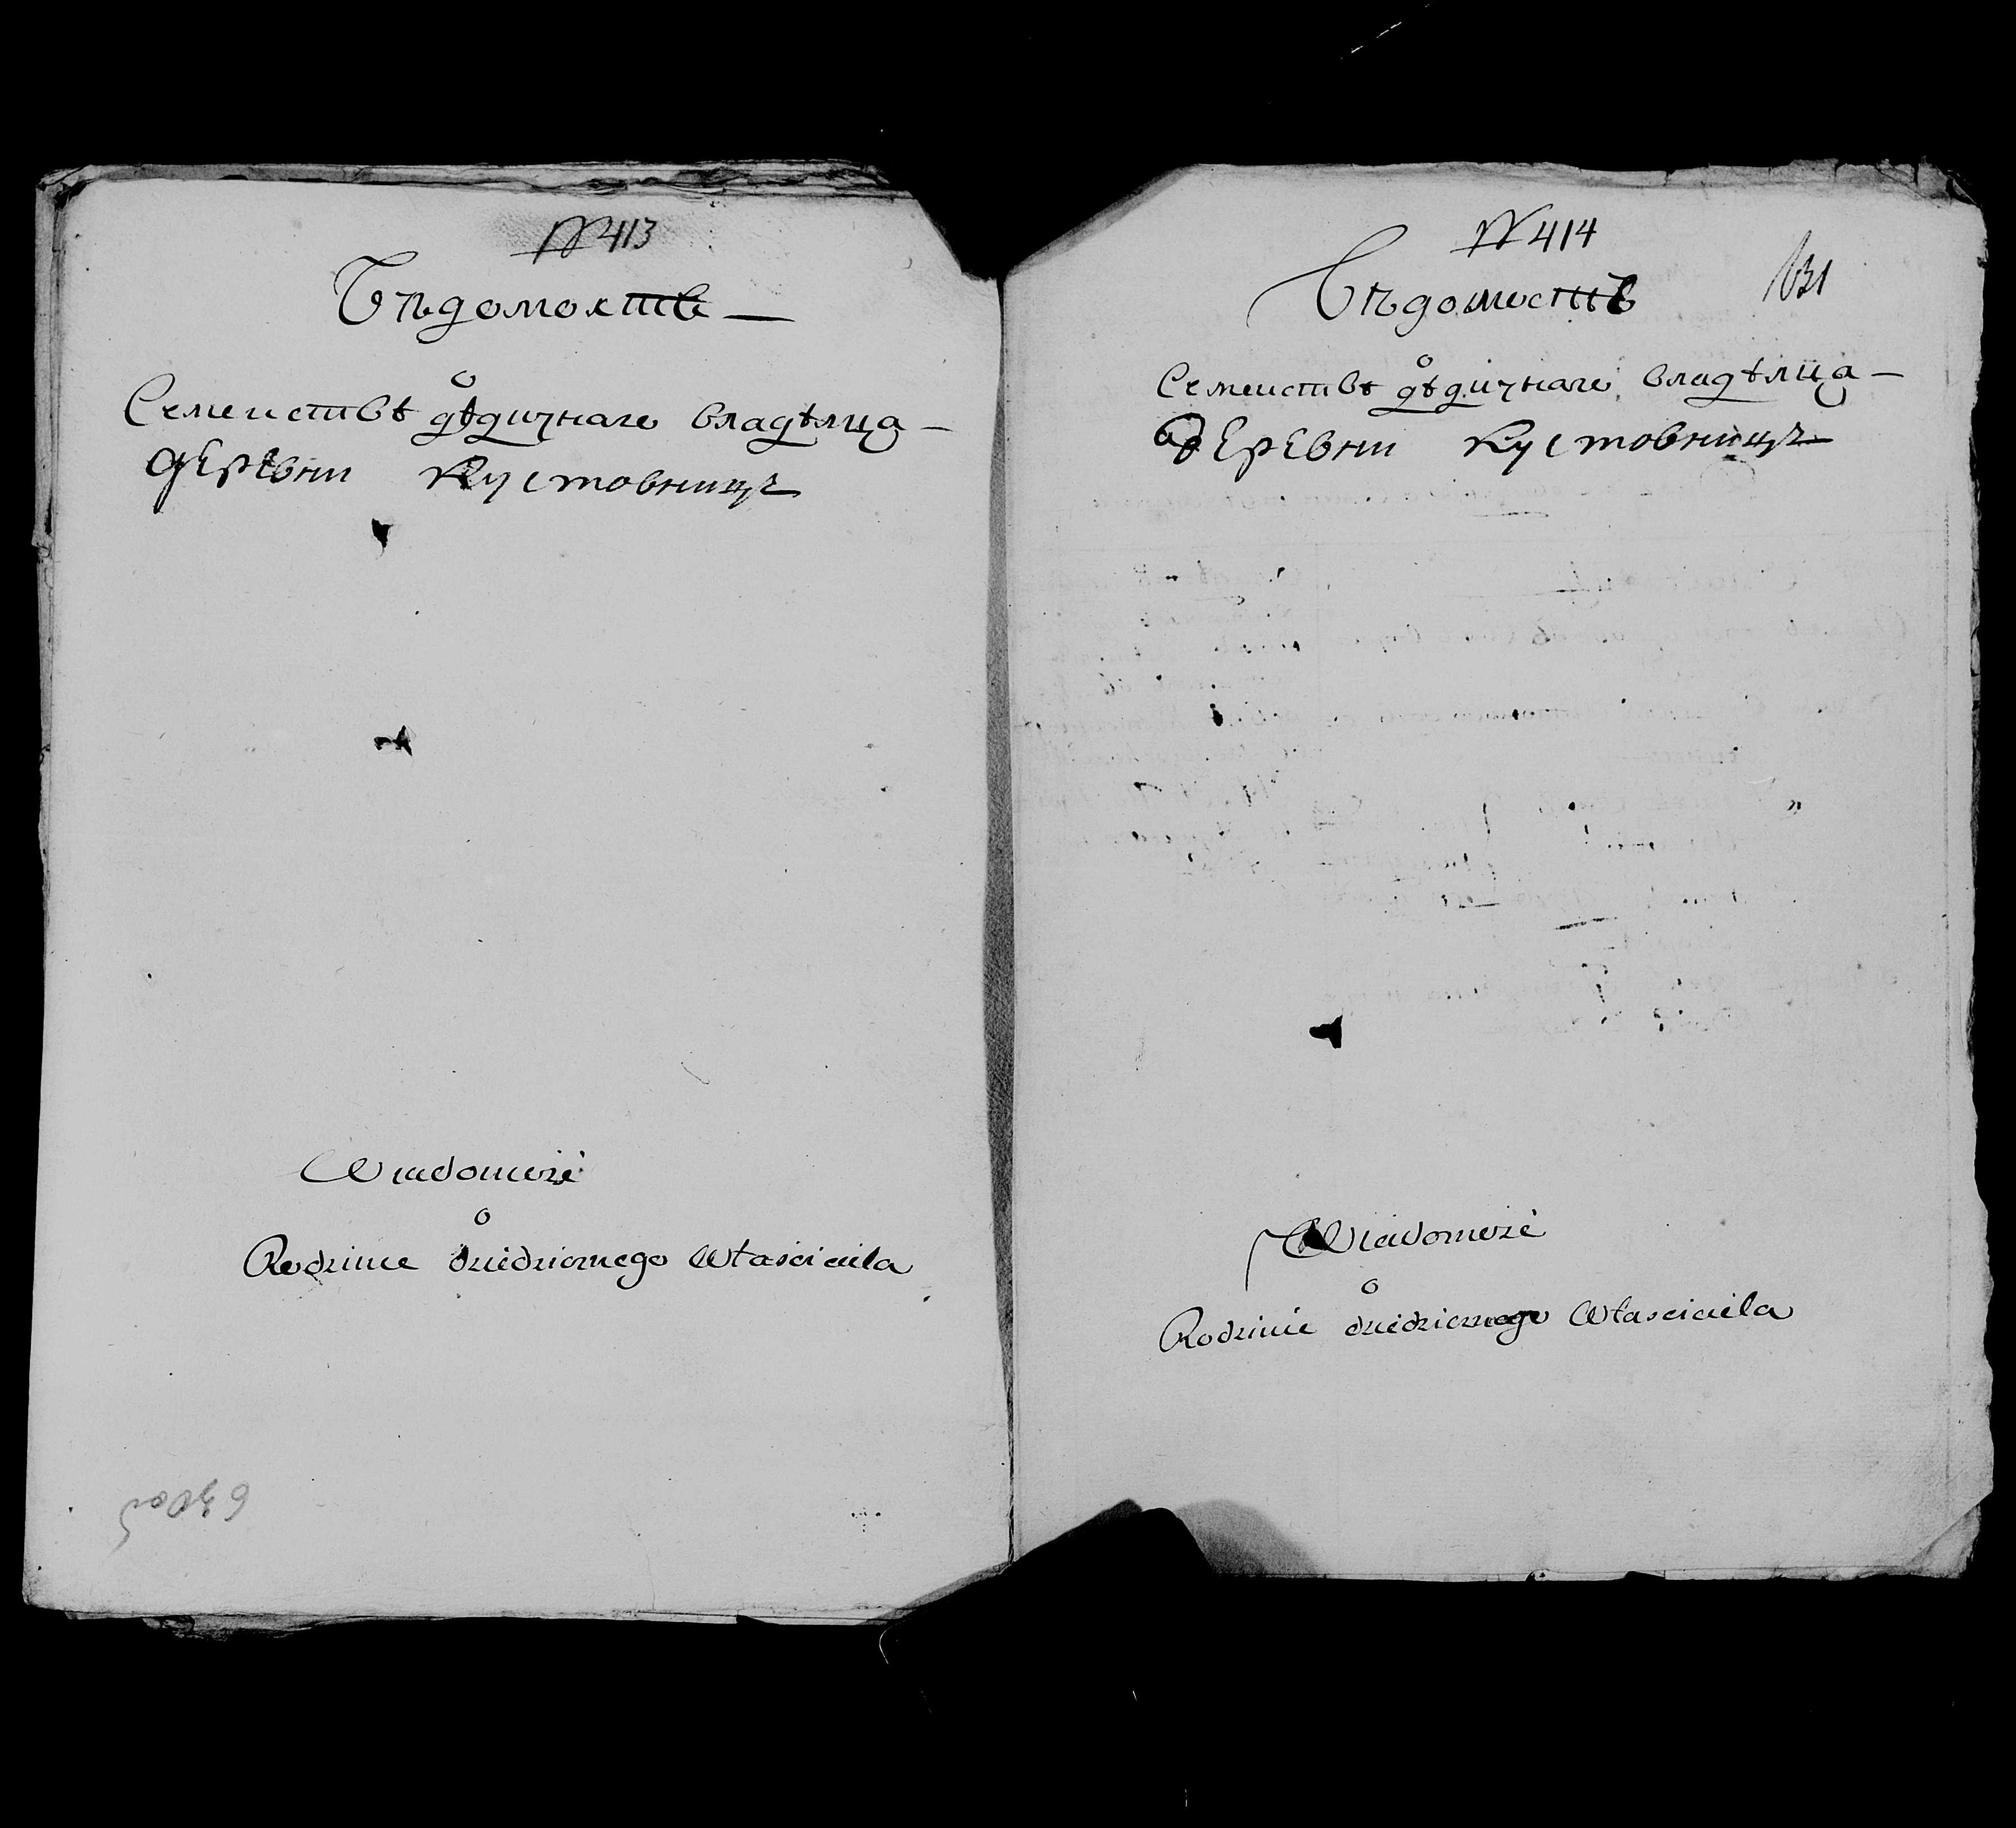 № 413
Вѣдомость —
о
Семействѣ дѣдичнаго владѣльца —
деревни Кустовницъ
Wiadomość
o
Rodzinie dziedzicznego Własciciela
№ 414
Вѣдомость
131
о
Семействѣ дѣдичнаго владѣльца —
деревни Кустовницъ
Wiadomość
o
Rodzinie dziedzicznego Własciciela